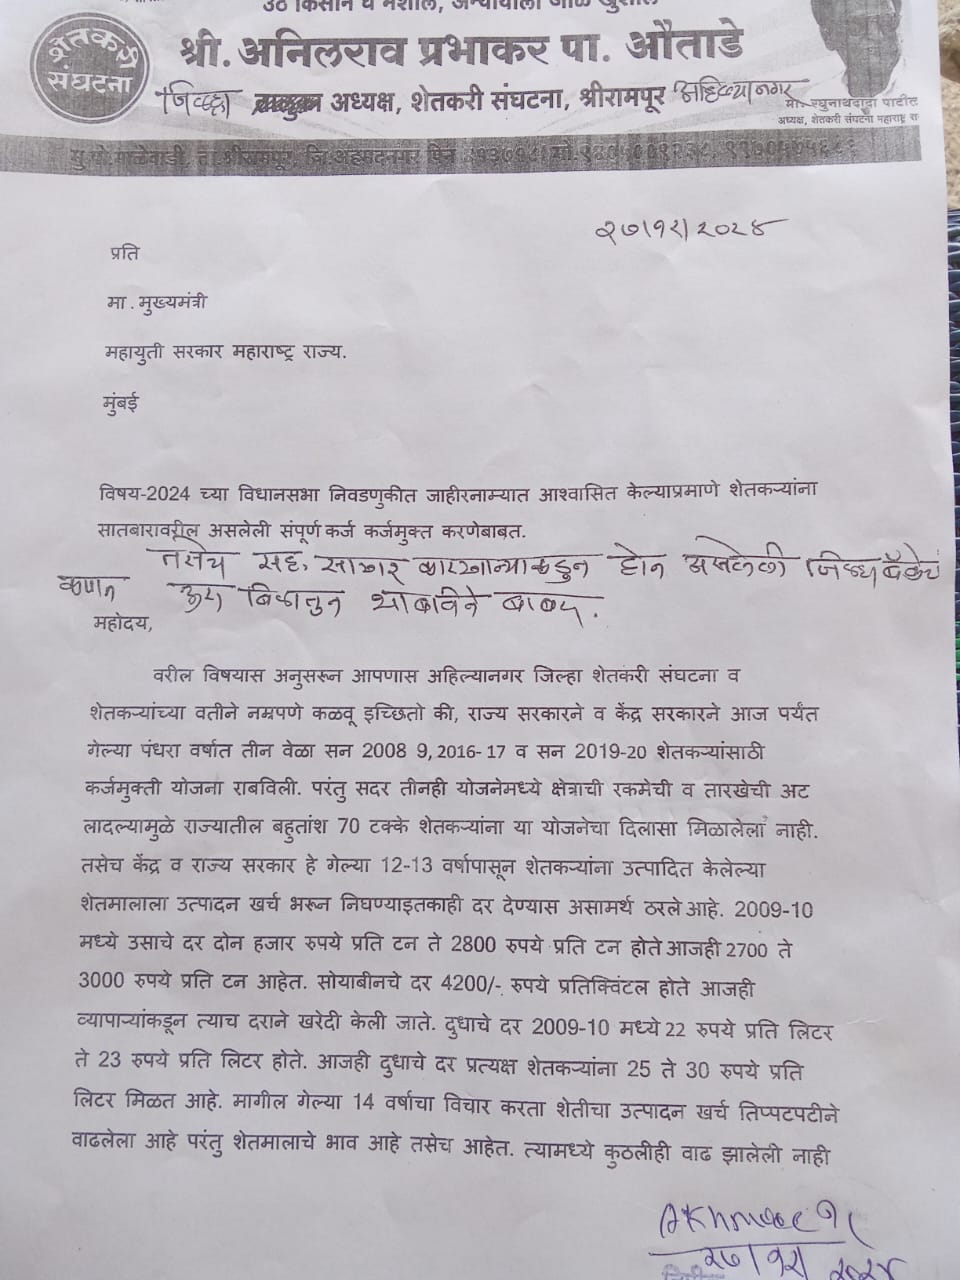 श्री. अनिलराव प्रभाकर पा. औताडे
शेतकरी संघटना
जिल्हा अध्यक्ष, शेतकरी संघटना, श्रीरामपूर अहिल्यानगर
मा. रघुनाथदादा पाटील
अध्यक्ष, शेतकरी संघटना महाराष्ट्र
२७/१२/२०२४
प्रति
मा . मुख्यमंत्री
महायुती सरकार महाराष्ट्र राज्य.
मुंबई
विषय-2024 च्या विधानसभा निवडणुकीत जाहीरनाम्यात आश्वासित केल्याप्रमाणे शेतकऱ्यांना
सातबारावरील असलेली संपूर्ण कर्ज कर्जमुक्त करणेबाबत.
तसेच सह. साखर कारखान्याकडुन होत असलेली जिल्हा बँकेचे
कपात ऊस बिलातुन थांबविणे बाबत.
महोदय,
वरील विषयास अनुसरून आपणास अहिल्यानगर जिल्हा शेतकरी संघटना व
शेतकऱ्यांच्या वतीने नम्रपणे कळवू इच्छितो की, राज्य सरकारने व केंद्र सरकारने आज पर्यंत
गेल्या पंधरा वर्षात तीन वेळा सन 2008 9, 2016- 17 व सन 2019-20 शेतकऱ्यांसाठी
कर्जमुक्ती योजना राबविली. परंतु सदर तीनही योजनेमध्ये क्षेत्राची रकमेची व तारखेची अट
लादल्यामुळे राज्यातील बहुतांश 70 टक्के शेतकऱ्यांना या योजनेचा दिलासा मिळालेला नाही.
तसेच केंद्र व राज्य सरकार हे गेल्या 12-13 वर्षापासून शेतकऱ्यांना उत्पादित केलेल्या
शेतमालाला उत्पादन खर्च भरून निघण्याइतकाही दर देण्यास असामर्थ ठरले आहे. 2009-10
मध्ये उसाचे दर दोन हजार रुपये प्रति टन ते 2800 रुपये प्रति टन होते आजही 2700 ते
3000 रुपये प्रति टन आहेत. सोयाबीनचे दर 4200/- रुपये प्रतिक्विंटल होते आजही
व्यापाऱ्यांकडून त्याच दराने खरेदी केली जाते. दुधाचे दर 2009-10 मध्ये 22 रुपये प्रति लिटर
ते 23 रुपये प्रति लिटर होते. आजही दुधाचे दर प्रत्यक्ष शेतकऱ्यांना 25 ते 30 रुपये प्रति
लिटर मिळत आहे. मागील गेल्या 14 वर्षाचा विचार करता शेतीचा उत्पादन खर्च तिप्पटपटीने
वाढलेला आहे परंतु शेतमालाचे भाव आहे तसेच आहेत. त्यामध्ये कुठलीही वाढ झालेली नाही
२७/१२/२०२४